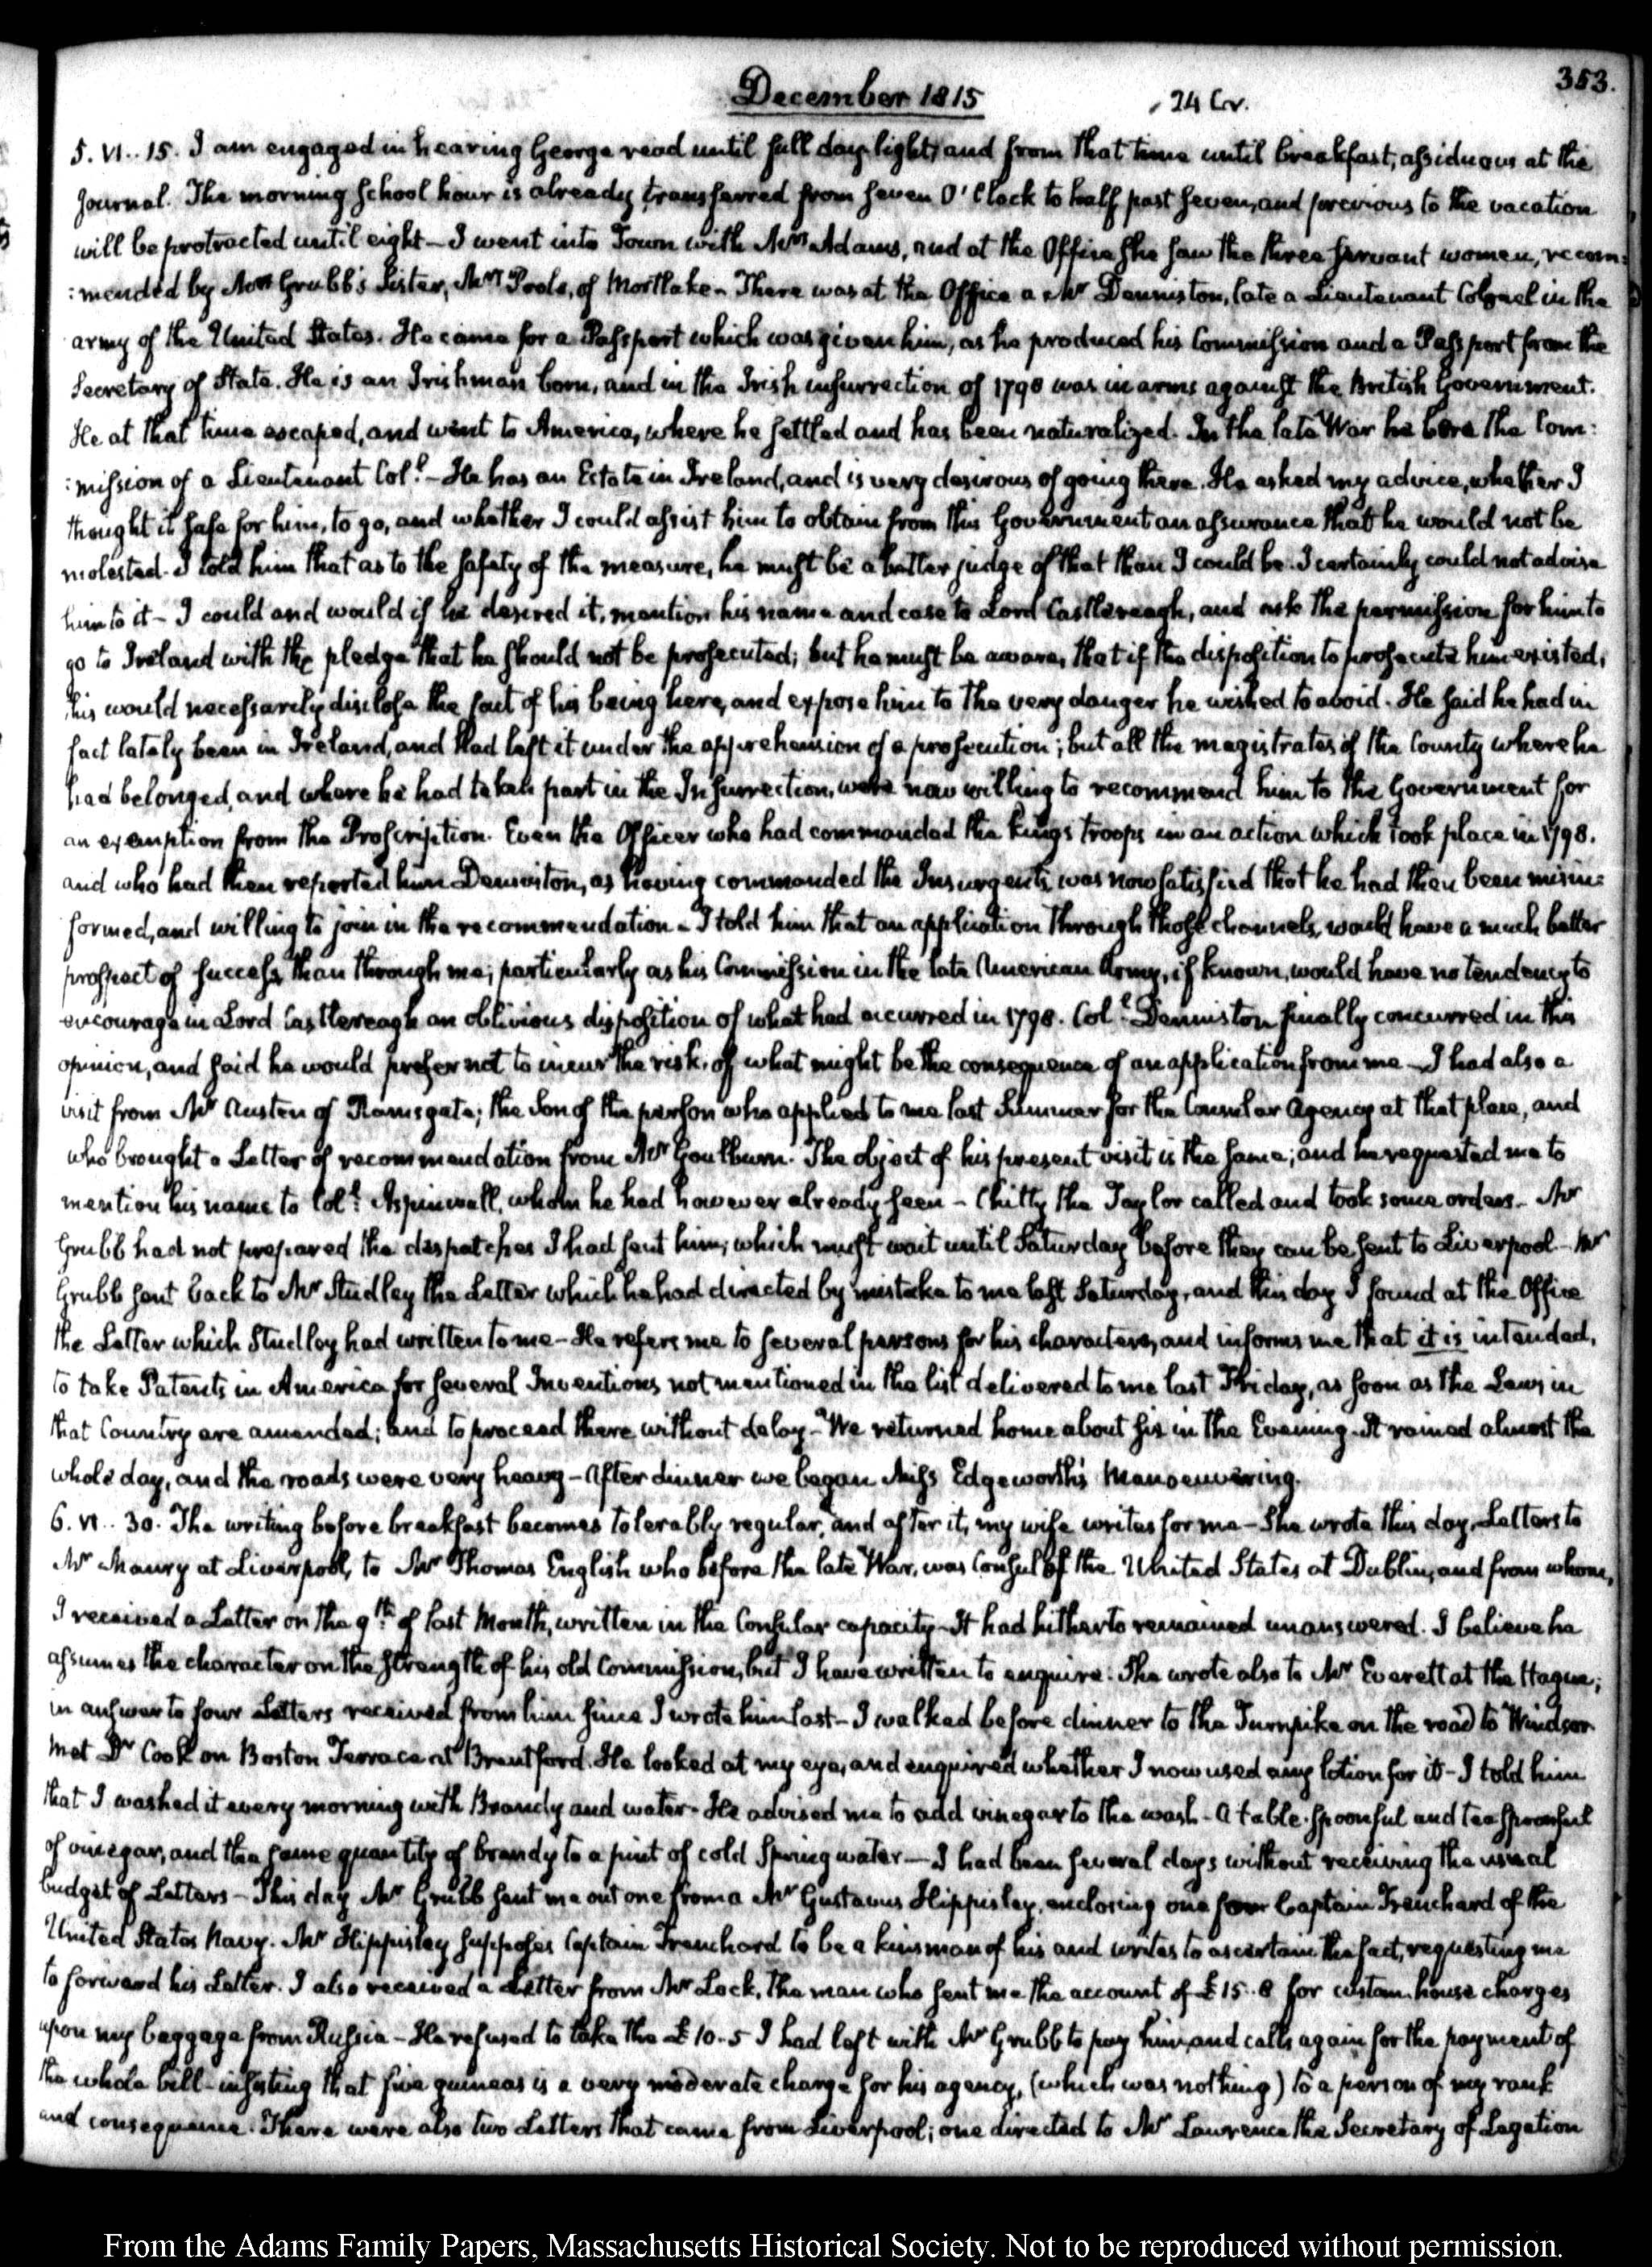 353.
December 1815
24 Cr.
5. VI.. 15. I am engaged in hearing George read until full day-light, and from that time until breakfast, assiduous at the
journal. The morning school hour is already transferred from seven O'Clock to half past seven, and previous to the vacation
will be protracted until eight — I went into Town with Mrs Adams, and at the Office she saw the three servant women, recom:
:mended by Mrs Grubb's Sister, Mrs Poole, of Mortlake — There was at the Office a Mr Denniston, late a Lieutenant Colonel in the
army of the United States. He came for a Passport which was given him, as he produced his Commission and a Passport from the
Secretary of State. He is an Irishman born, and in the Irish insurrection of 1798 was in arms against the British Government.
He at that time escaped, and went to America, where he settled and has been naturalized. In the late War he bore the Com:
:mission of a Lieutenant Col.l — He has an Estate in Ireland, and is very desirous of going there. He asked my advice, whether I
thought it safe for him, to go, and whether I could assist him to obtain from this Government an assurance that he would not be
molested. I told him that as to the safety of the measure, he must be a better judge of that than I could be. I certainly could not advise
him to it — I could and would if he desired it, mention his name and case to Lord Castlereagh, and ask the permission for him to
go to Ireland with the pledge that he should not be prosecuted; but he must be aware, that if the disposition to prosecute him existed,
this would necessarily disclose the fact of his being here, and expose him to the very danger he wished to avoid. He said he had in
fact lately been in Ireland, and had left it under the apprehension of a prosecution; but all the magistrates of the County where he
had belonged, and where he had taken part in the Insurrection, were now willing to recommend him to the Government for
an exemption from the Proscription. Even the Officer who had commanded the kings troops in an action which took place in 1798.
and who had then reported him Denniston, as having commanded the Insurgents, was now satisfied that he had then been misin:
formed, and willing to join in the recommendation — I told him that an application through those channels, would have a much better
prospect of success, than through me; particularly as his Commission in the late American Army, if known, would have no tendency to
encourage in Lord Castlereagh an oblivious disposition of what had occurred in 1798. Col.l Denniston finally concurred in this
opinion, and said he would prefer not to incur the risk, of what might be the consequence of an application from me — I had also a
visit from Mr Austen of Ramsgate; the Son of the person who applied to me last Summer for the Consular Agency at that place, and
who brought a Letter of recommendation from Mr Goulburn. The object of his present visit is the same; and he requested me to
mention his name to Col.l Aspinwall, whom he had however already seen — Chitty the Taylor called and took some orders — Mr
Grubb had not prepared the dispatches I had sent him, which must wait until Saturday before they can be sent to Liverpool — Mr
Grubb sent back to Mr Studley the Letter which he had directed by mistake to me last Saturday, and this day I found at the Office
the Letter which Studley had written to me — He refers me to several persons for his character, and informs me that it is intended,
to take Patents in America for several Inventions not mentioned in the list delivered to me last Friday, as soon as the Laws in
that Country are amended; and to proceed there without delay — We returned home about six in the Evening. It rained almost the
whole day, and the roads were very heavy — After dinner we began Miss Edgeworth's Manoeuvering.
6. VI.. 30. The writing before breakfast becomes tolerably regular, and after it, my wife writes for me — She wrote this day, Letters to
Mr Maury at Liverpool, to Mr Thomas English who before the late War, was Consul of the United States at Dublin, and from whom,
I received a Letter on the 9th of last Month, written in the Consular capacity — It had hitherto remained unanswered. I believe he
assumes the character on the strength of his old Commission, but I have written to enquire. She wrote also to Mr Everett at the Hague;
in answer to four Letters received from him since I wrote him last — I walked before dinner to the Turnpike on the road to Windsor
met Dr Cook on Boston Terrace at Brentford. He looked at my eye, and enquired whether I now used any lotion for it — I told him
that I washed it every morning with Brandy and water. He advised me to add vinegar to the wash — A table-spoonful and tea spoonful
of vinegar, and the same quantity of brandy to a pint of cold Spring water — I had been several days without receiving the usual
budget of Letters — This day Mr Grubb sent me out one from a Mr Gustavus Hippisley, enclosing one for Captain Trenchard of the
United States Navy. Mr Hippisley supposes Captain Trenchard to be a kinsman of his and writes to ascertain the fact, requesting me
to forward his Letter. I also received a Letter from Mr Lock, the man who sent me the account of £15..8 for custom-house charges
upon my baggage from Russia — He refused to take the £10-5 I had left with Mr Grubb to pay him, and calls again for the payment of
the whole bill — insisting that five guineas is a very moderate charge for his agency, (which was nothing) to a person of my rank
and consequence. There were also two Letters that came from Liverpool; one directed to Mr Lawrence the Secretary of Legation
From the Adams Family Papers, Massachusetts Historical Society. Not to be reproduced without permission.